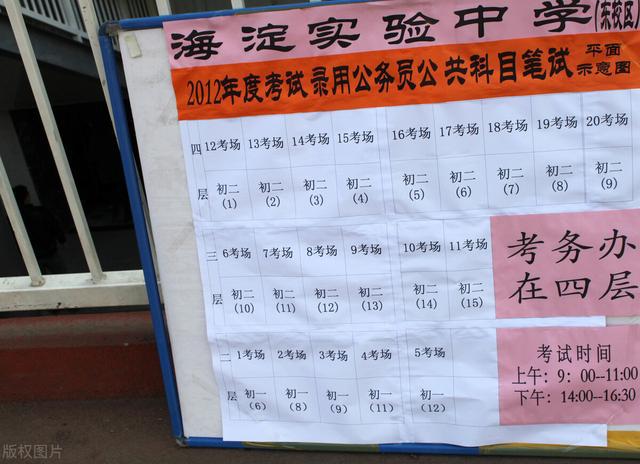 海淀实验中学(东校区)
2012年度考试录用公务员公共科目笔试 平面示意图
四层 12考场 13考场 14考场 15考场 16考场 17考场 18考场 19考场 20考场
初二(1) 初二(2) 初二(3) 初二(4) 初二(5) 初二(6) 初二(7) 初二(8) 初二(9)
三层 6考场 7考场 8考场 9考场 10考场 11考场
初二(10) 初二(11) 初二(12) 初二(13) 初二(14) 初二(15)
考务办
在四层
二层 1考场 2考场 3考场 4考场 5考场
初一(6) 初一(8) 初一(9) 初一(11) 初一(12)
考试时间
上午：9：00--11:00
下午：14:00--16:30
版权图片